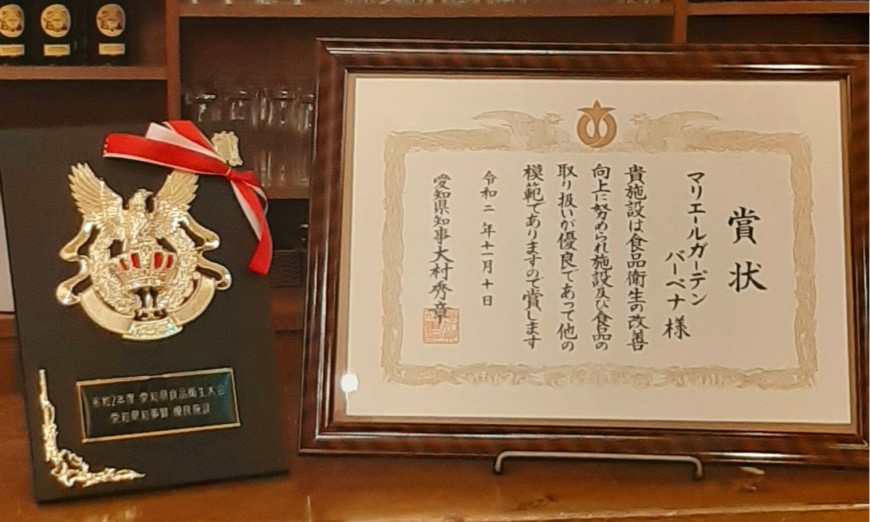 賞状
マリエールガーデン
バーベナ 様
貴施設は食品衛生の改善
向上に努められ施設及び食品の
取り扱いが優良であって他の
模範でありますので賞します
令和二年十一月十日
愛知県知事大村秀章
令和2年度 愛知県食品衛生大会
愛知県知事賞 優良施設